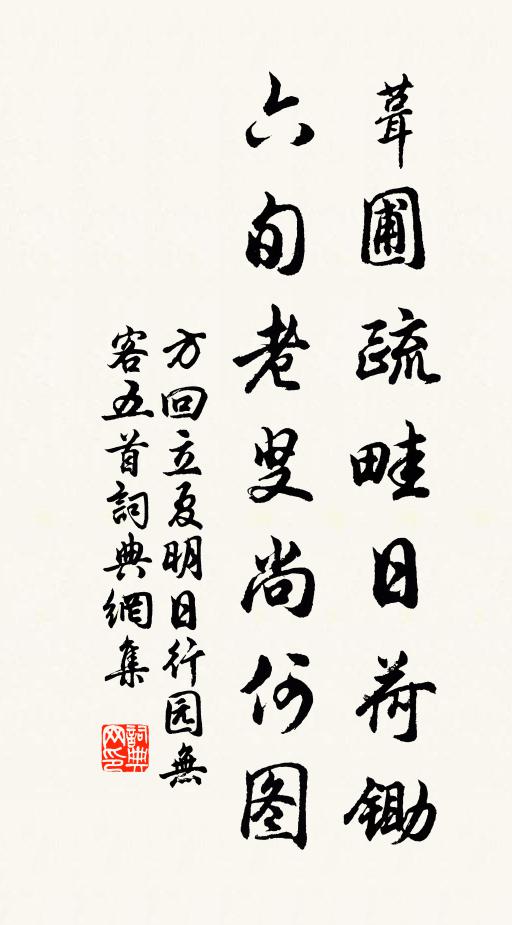 葺圃疏畦日荷锄
六旬老叟尚何图
方回立夏明日行园無
客五首詞典網集
詞典网印